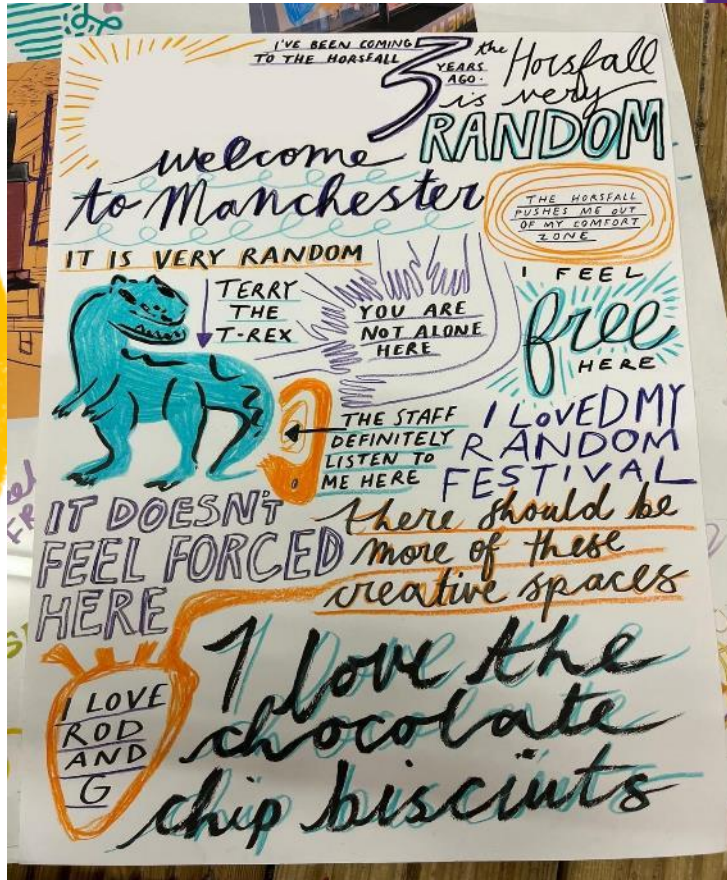 I'VE BEEN COMING
TO THE HORSFALL
3
YEARS
AGO.
the Horsfall
is very
RANDOM
welcome
to Manchester
THE HORSFALL
PUSHES ME OUT
OF MY COMFORT
ZONE
IT IS VERY RANDOM
TERRY
THE
T-REX
YOU ARE
NOT ALONE
HERE
I FEEL
free
HERE
THE STAFF
DEFINITELY
LISTEN TO
ME HERE
I LOVED MY
RANDOM
FESTIVAL
IT DOESN'T
FEEL FORCED
HERE
there should be
more of these
creative spaces
I LOVE
ROD
AND
G
I love the
chocolate
chip bisciuts